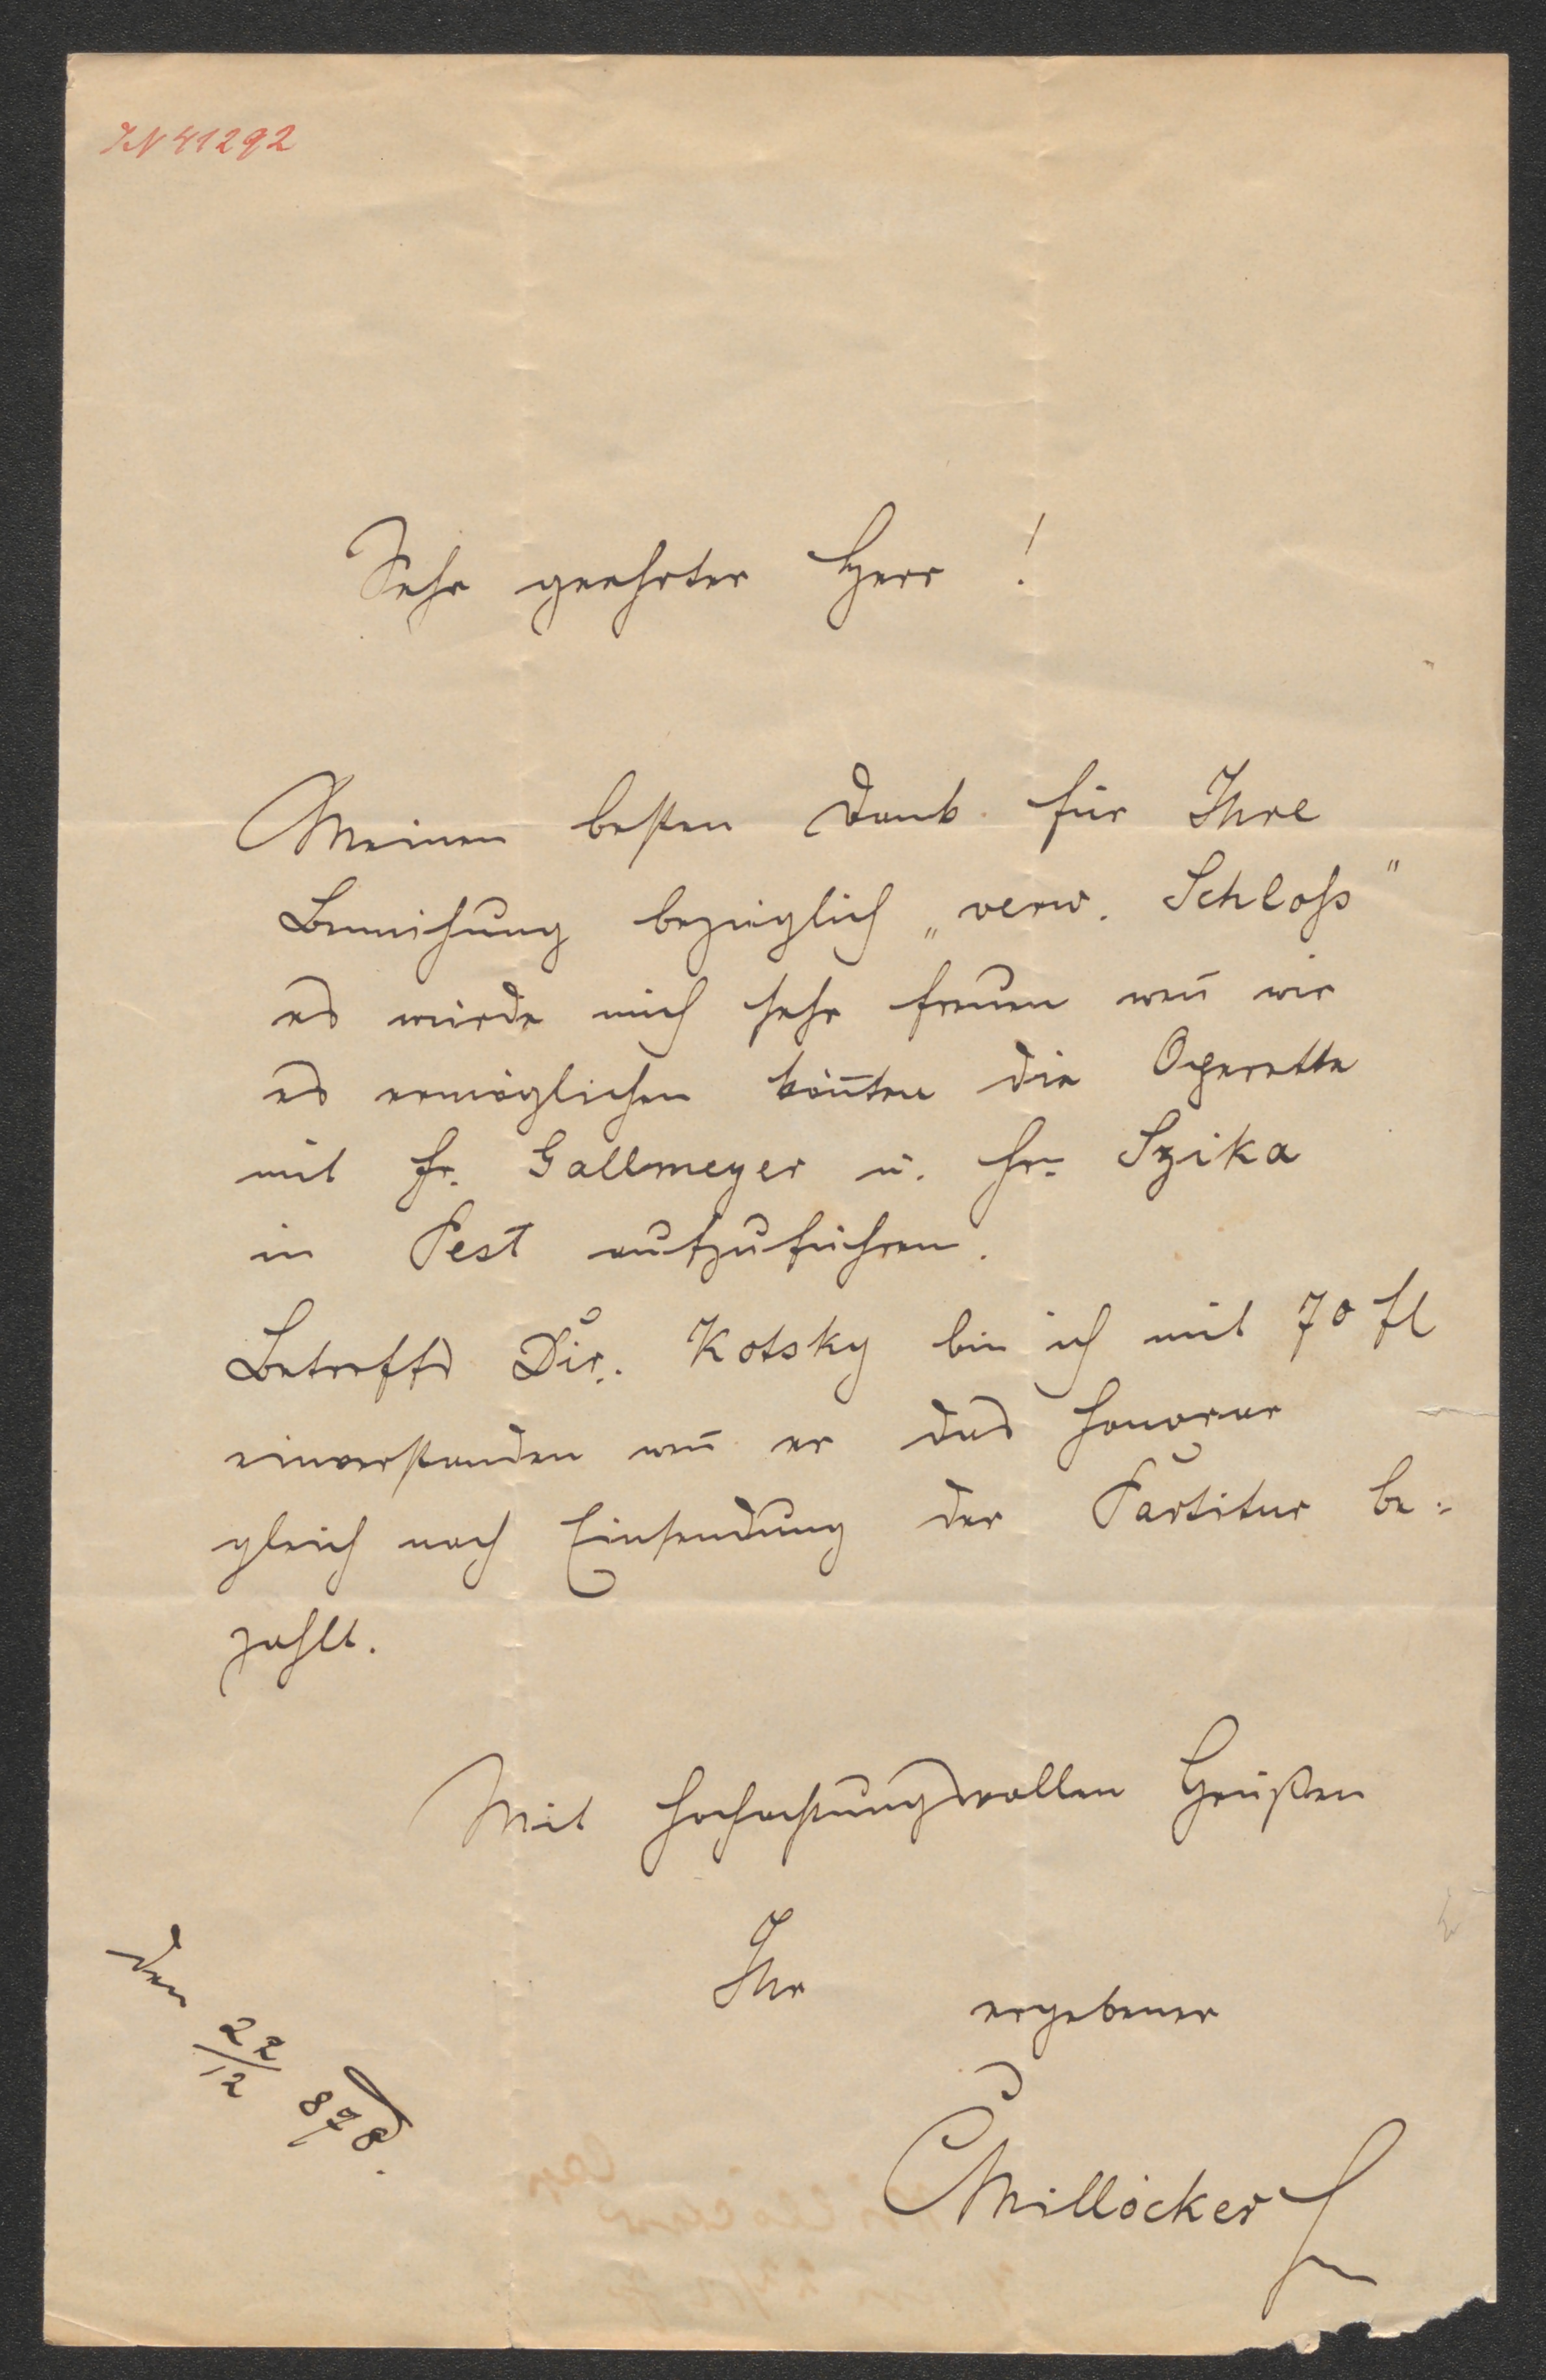 IN 41292
Sehr geehrter Herr !
Meinen besten Dank für Ihre
Bemühung bezüglich „verw. Schloß"
es würde mich sehr freuen weñ wir
es ermöglichen köñten die Operette
mit Fr. Gallmeyer u. Hr. Szika
in Pest aufzuführen.
Betreffs Dir. Kotsky bin ich mit 70 fl
einverstanden weñ er das Honorar
gleich nach Einsendung der Partitur be-
zahlt.
Mit hochachtungsvollen Grüßen
Ihr ergebener
CMillöcker
den 22/12 878.